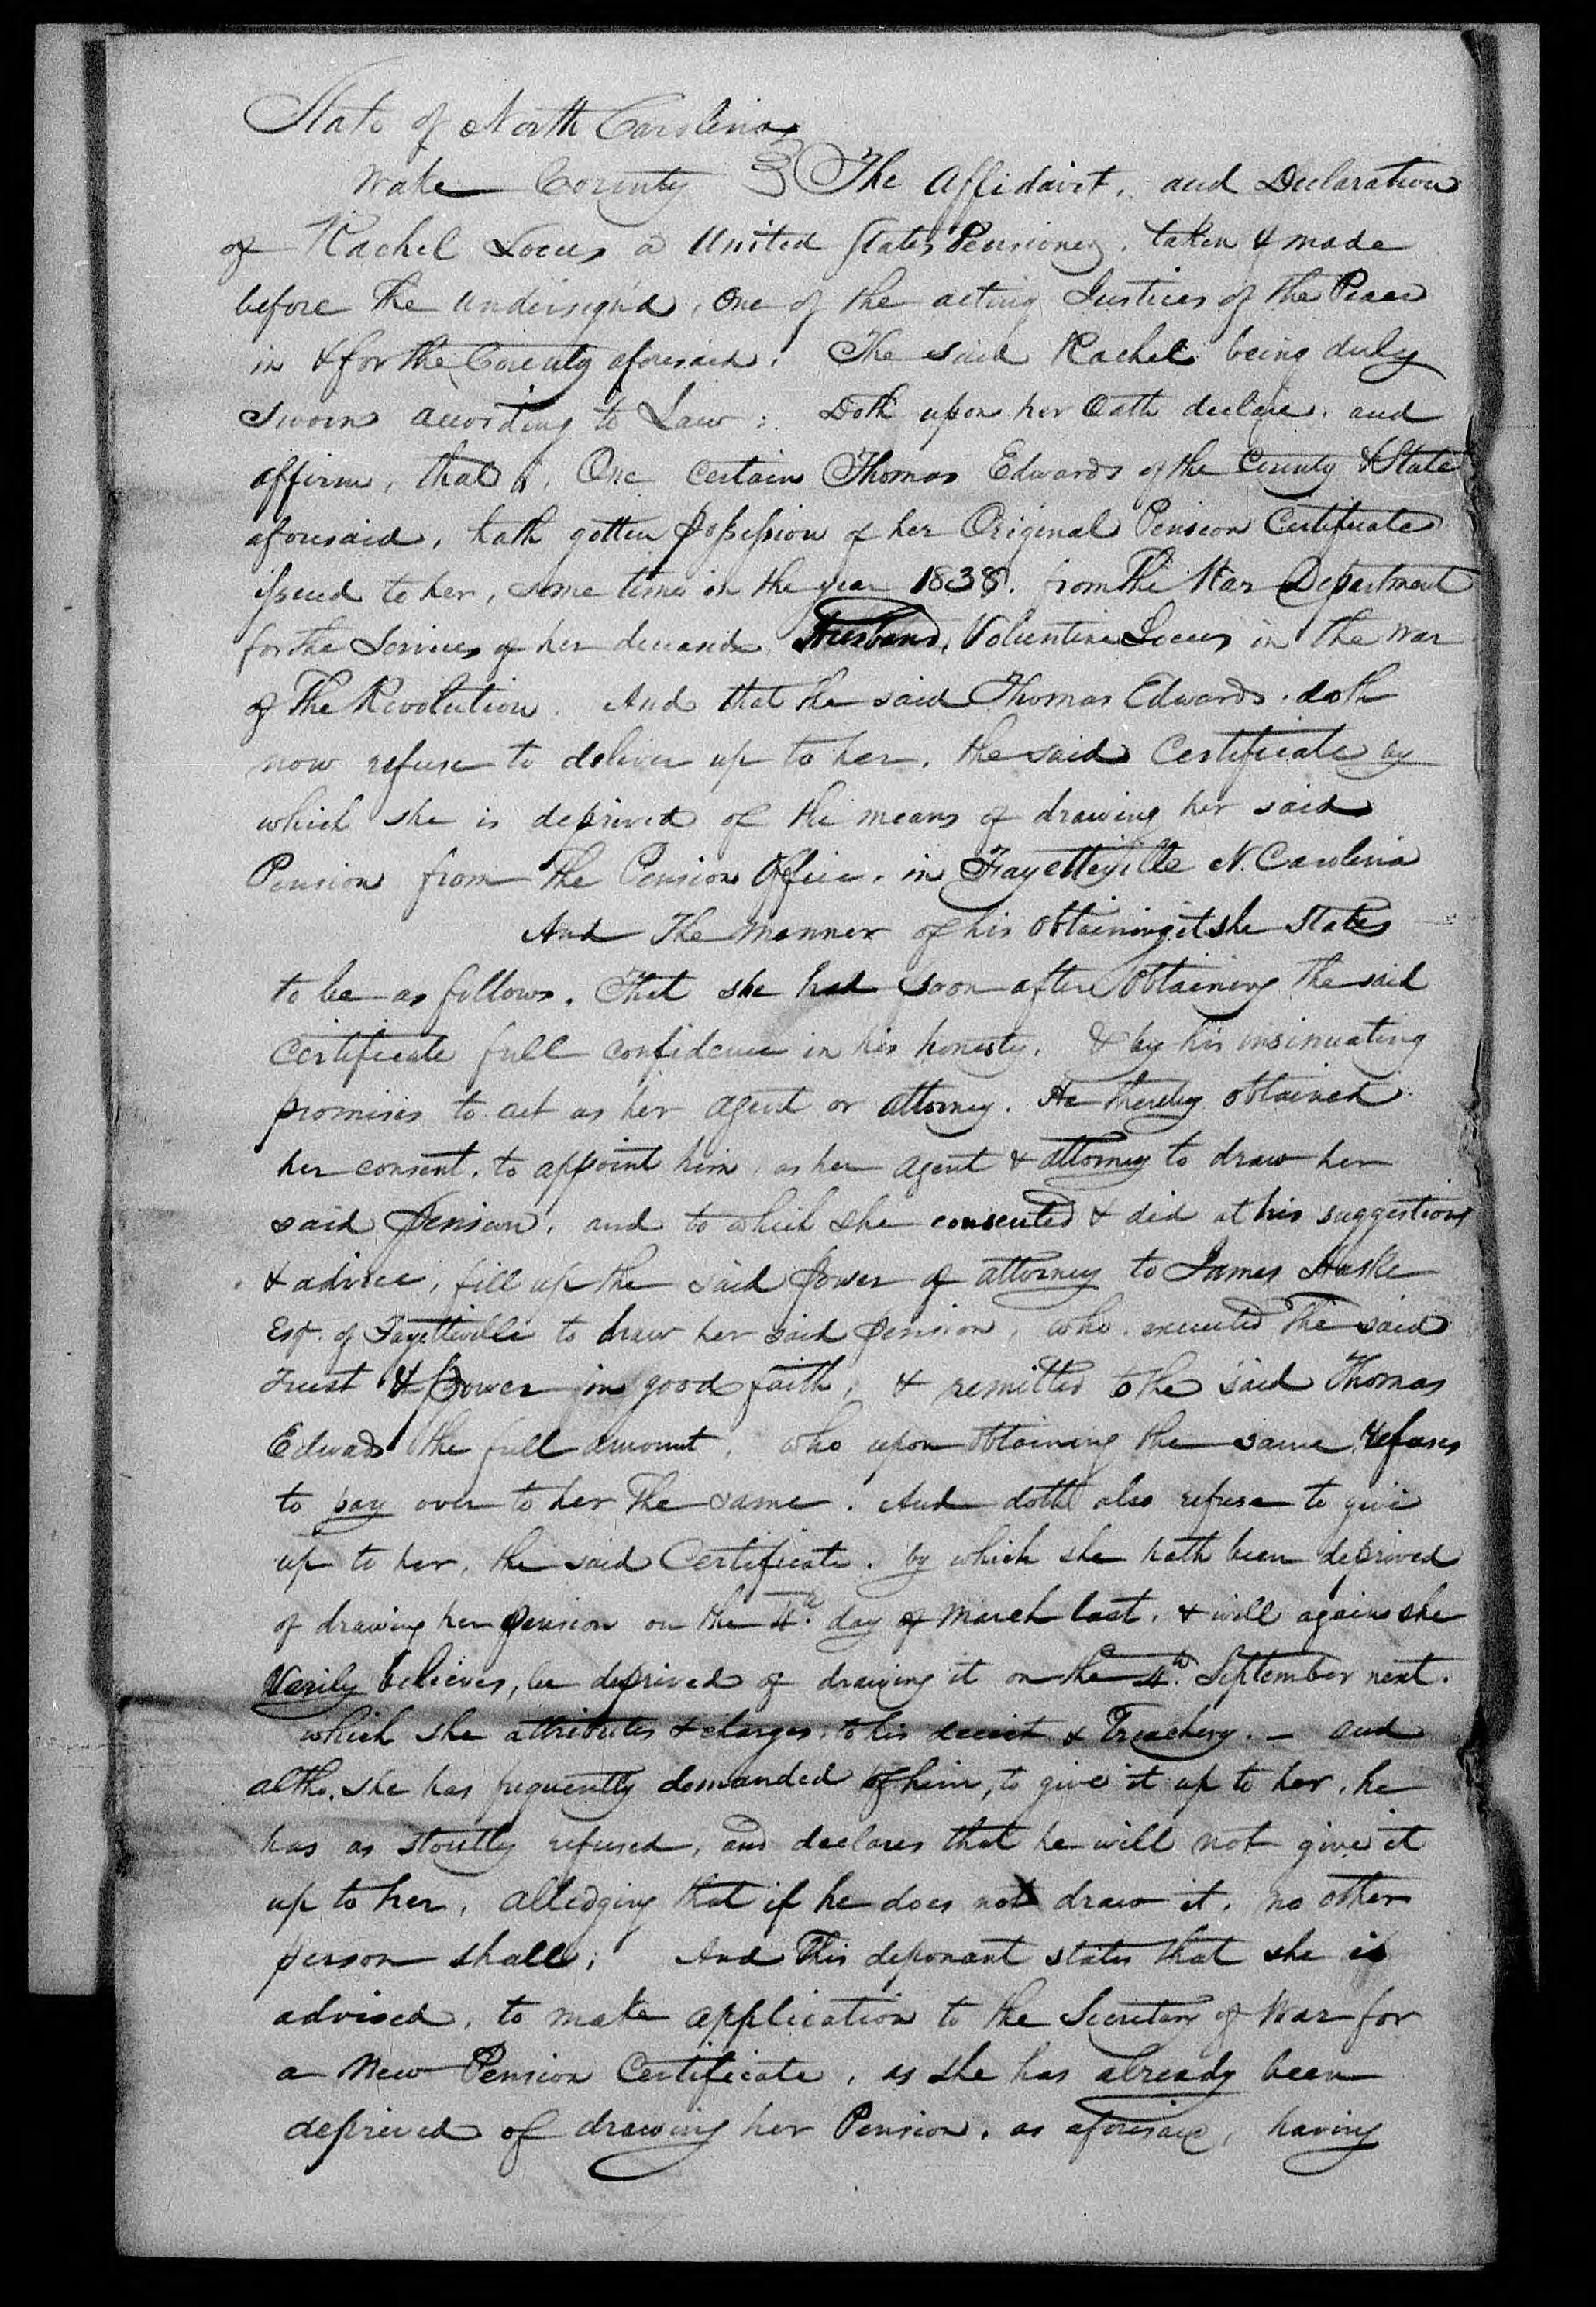 State of North Carolina
Wake County } The Affidavit, and Declaration
of Rachel Locus a United States Pensioner, taken & made
before the undersign'd, One of the acting Justices of the Peace
in & for the County aforesaid. The said Rachel being duly
sworn according to Law: Doth upon her Oath declare, and
affirm, that, One certain Thomas Edwards of the County & State
aforesaid, hath gotten possession of her Original Pension Certificate
issued to her, some time in the year 1838. from The War Department
for the Services of her deceased Husband, Voluntine Locus in the War
of The Revolution. And that he said Thomas Edwards. doth
now refuse to deliver up to her, the said Certificate by
which she is deprived of the means of drawing her said
Pension from The Pension Office, in Fayetteville N. Carolina
And The manner of his obtaining it she States
to be as follows. That she had soon after obtaining the said
Certificate full confidence in his honesty. & by his insinuating
promises to act as her agent or attorney. He thereby obtained
her consent, to appoint him, as her agent & attorney to draw her
said pension, and to which she consented & did at his suggestions
& advice, fill up the said power of attorney to James Huske
Esqr. of Fayetteville to draw her said pension, who executed The said
Trust & power in good faith, & remitted to he said Thomas
Edwads the full amount, who upon obtaining the same, refuses
to pay over to her The same. And doth also refuse to give
up to her, the said Certificate. by which she hath been deprived
of drawing her pension on the 4th. day of March last. & will again she
Verily believes, be deprived of drawing it on the 4th. September next.
which she attributes & charges to his deceit & Treachery. – and
altho. she has frequently demanded of him, to give it up to her, he
has as stoutly refused, and declares that he will not give it
up to her, alledging that if he does not draw it, no other
person shall; And This deponant states that she is
advised, to make application to the Secretary of War for
a New Pension Certificate, as she has already been
deprived of drawing her Pension, as aforesaid, having